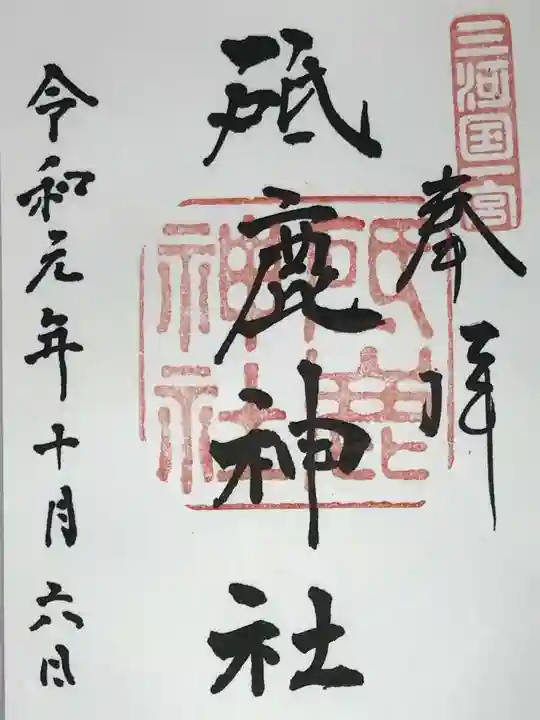 三河国一宮
奉拝
砥鹿神社
砥鹿神社
令和元年十月六日